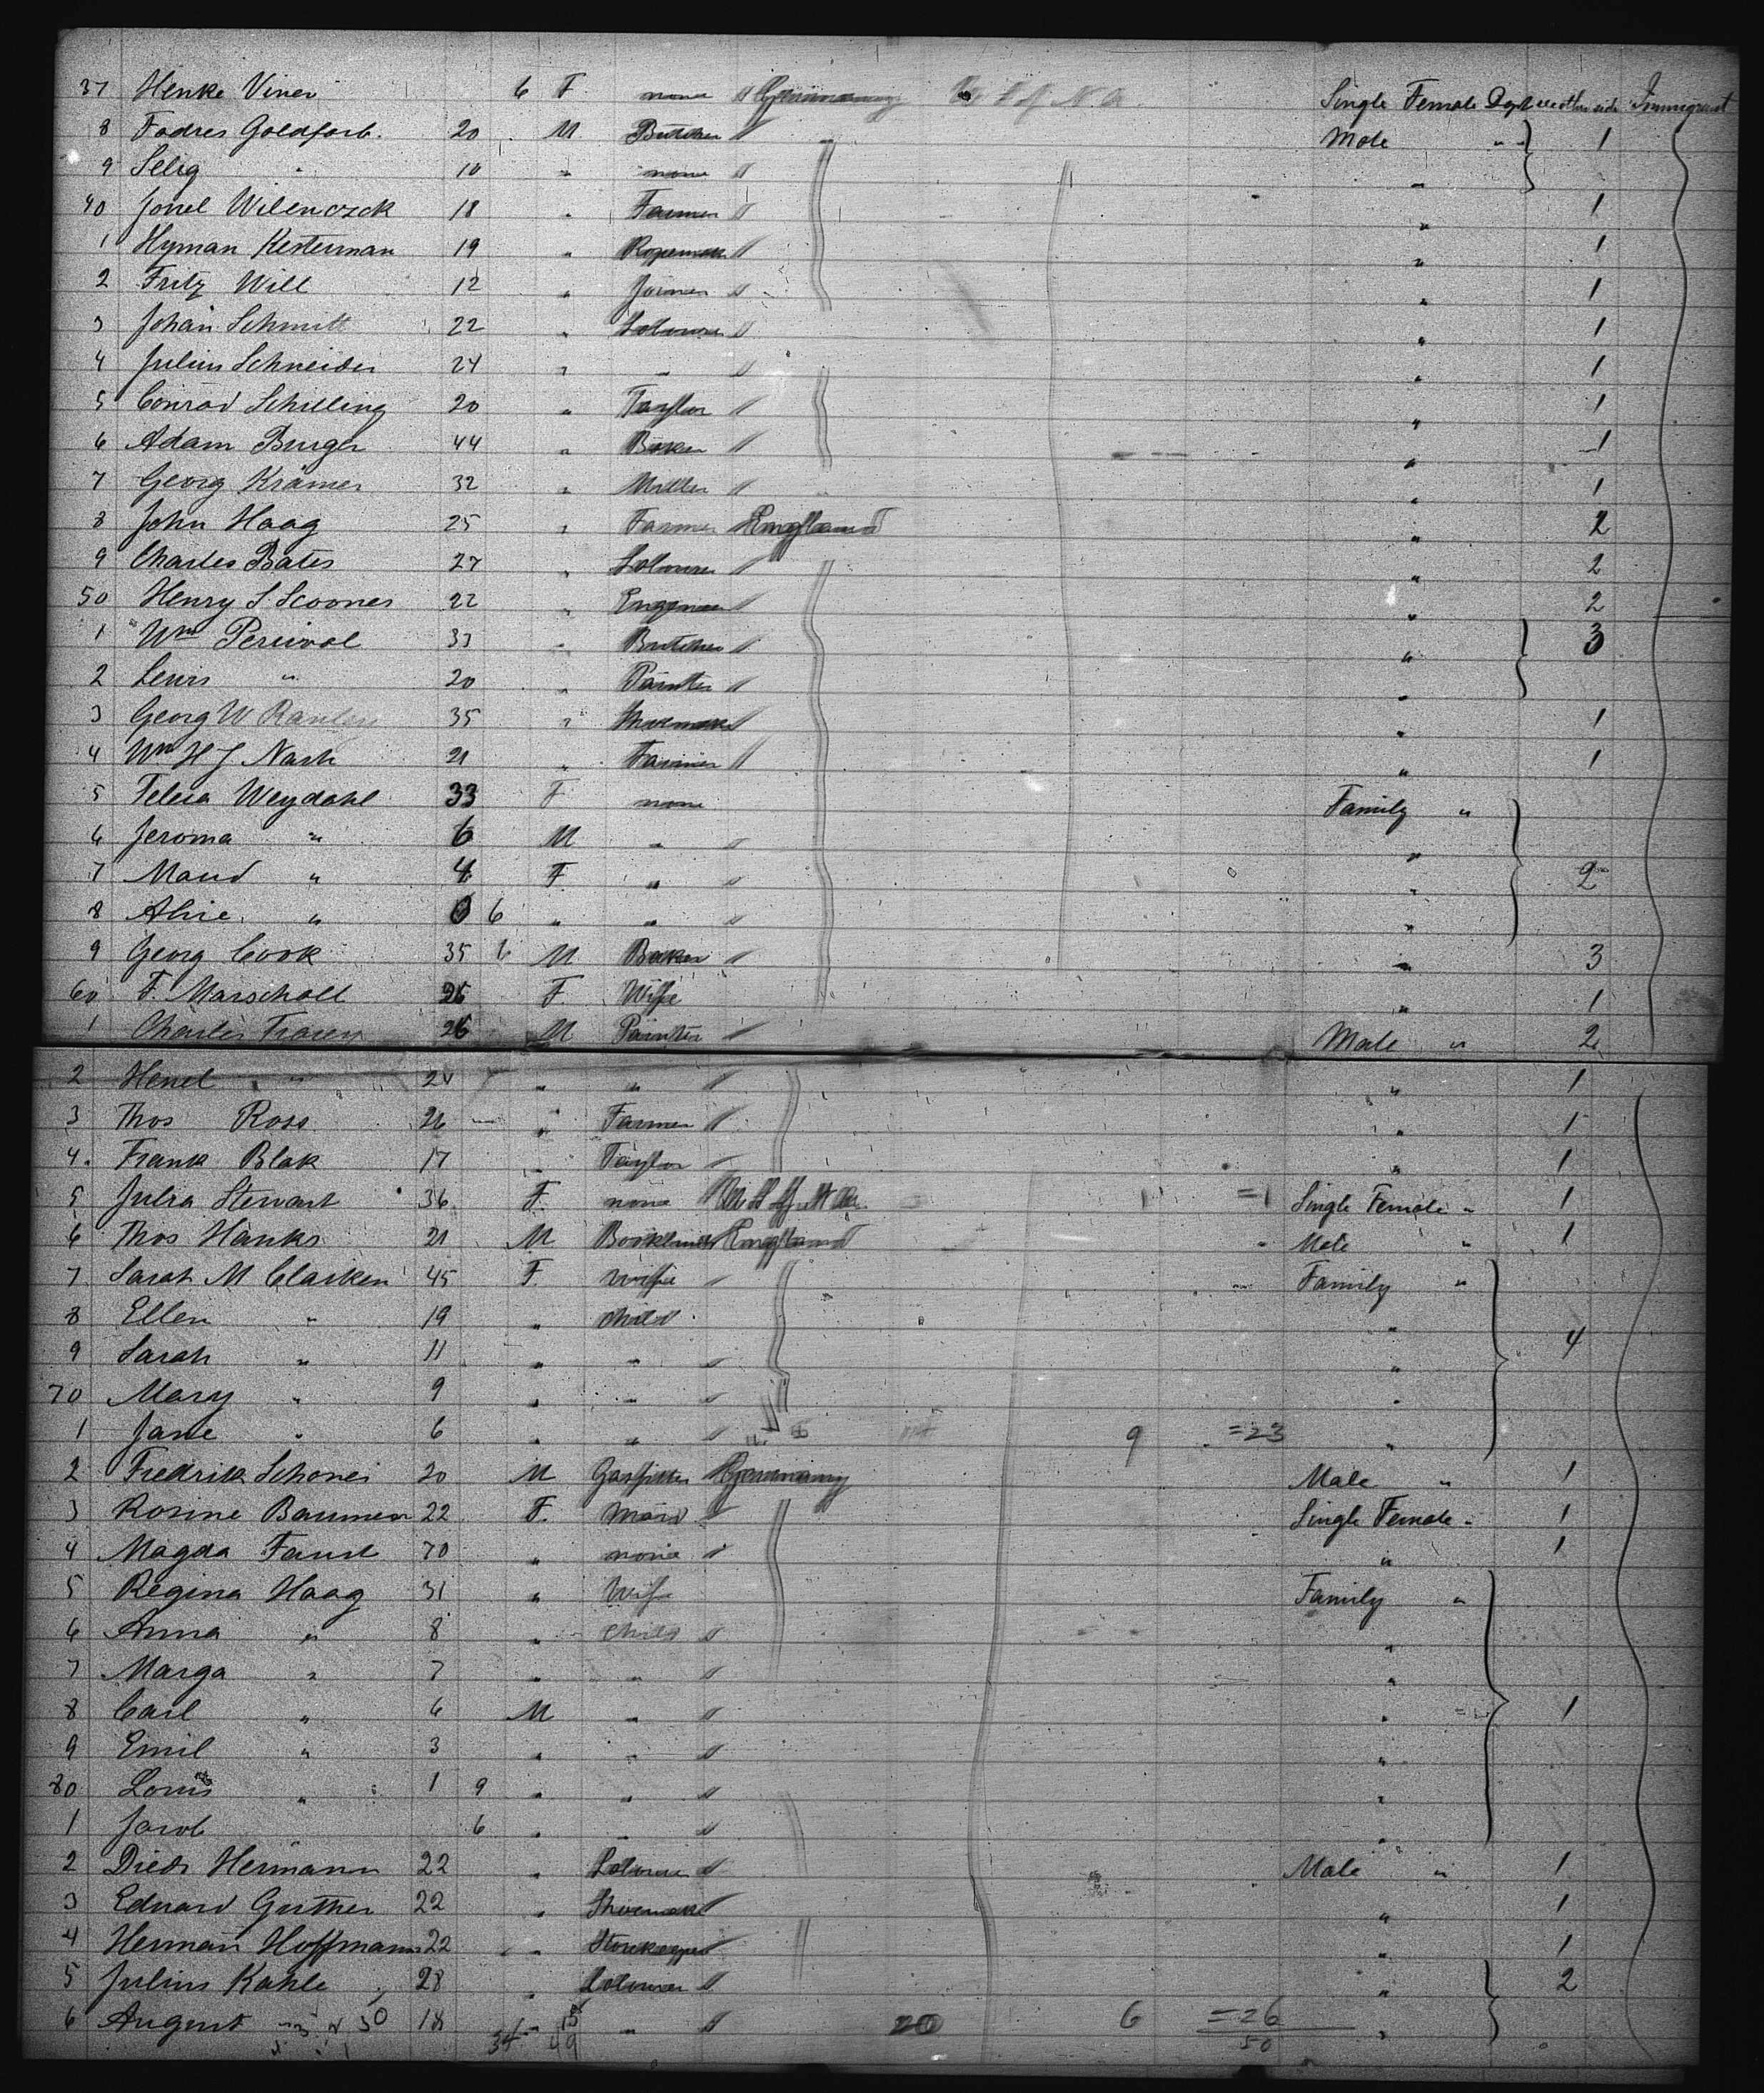 37 Henke Viner 6 F. none " Germany U.S. of N.A. Single Female Immigrant
8 Fadres Goldfarb. 20 M. Butcher " Male " 1
9 Selig " 10 " none " "
40 Jonel Wilenczck 18 " Farmer " " 1
1 Hyman Kesterman 19 " Ropeman " " 1
2 Fritz Will 12 " Joiner " " 1
3 Johan Schmitt 22 " Labourer " " 1
4 Julius Schneider 24 " " " " 1
5 Conrad Schilling 20 " Taylor " " 1
6 Adam Burger 44 " Baker " " 1
7 Georg Krämer 32 " Miller " " 1
8 John Haag 25 " Farmer England " 2
9 Charles Bates 27 " Labourer " " 2
50 Henry S. Scoones 22 " Engineer " " 2
1 Wm Percival 33 " Butcher " " 3
2 Lewis " 20 " Painter " "
3 Georg W 35 " Shoemaker " " 1
4 Wm H J Nash 21 " Farmer " " 1
5 Felcia Weydahl 33 F none Family "
6 Jeroma " 6 M " " "
7 Maud " 4 F. " " " 2
8 Alice " 0 6 " " " "
9 Georg Cook 35 6 M Baker " " 3
60 F. Marschall 26 F. Wife " 1
1 Charles Tracey 26 M Painter " Male " 2
2 Henel " 24 " " " " 1
3 Thos Ross 26 " Farmer " " 1
4 Frank Blak 17 " Taylor " " 1
5 Julia Stewart 36 F. none =1 Single Female " 1
6 Thos Hanks 21 M England Male " 1
7 Sarah M Clarken 45 F. Wife " Family "
8 Ellen " 19 " child " 4
9 Sarah " 11 " " " "
70 Mary " 9 " " " "
1 Jane " 6 " " " 9 =23 "
2 Fredrik Schoner 20 M Gasfitter Germany Male " 1
3 Rosine Baumer 22 F. Maid " Single Female " 1
4 Magda Faust 70 " none " " 1
5 Regina Haag 31 " Wife Family "
6 Anna " 8 " child " "
7 Marga " 7 " " " "
8 Carl " 6 M " " " 1
9 Emil " 3 " " " "
80 Louis " 1 9 " " " "
1 Jacob 6 " " " "
2 Died. Hermann 22 " Labourer " Male " 1
3 Eduard Guther 22 " Shoemaker " " 1
4 Herman Hoffmann 22 " Storekeeper " " 1
5 Julius Kahle 28 " Labourer " " 2
6 August " 18 " " " 20 6 =26 "
34 49 50